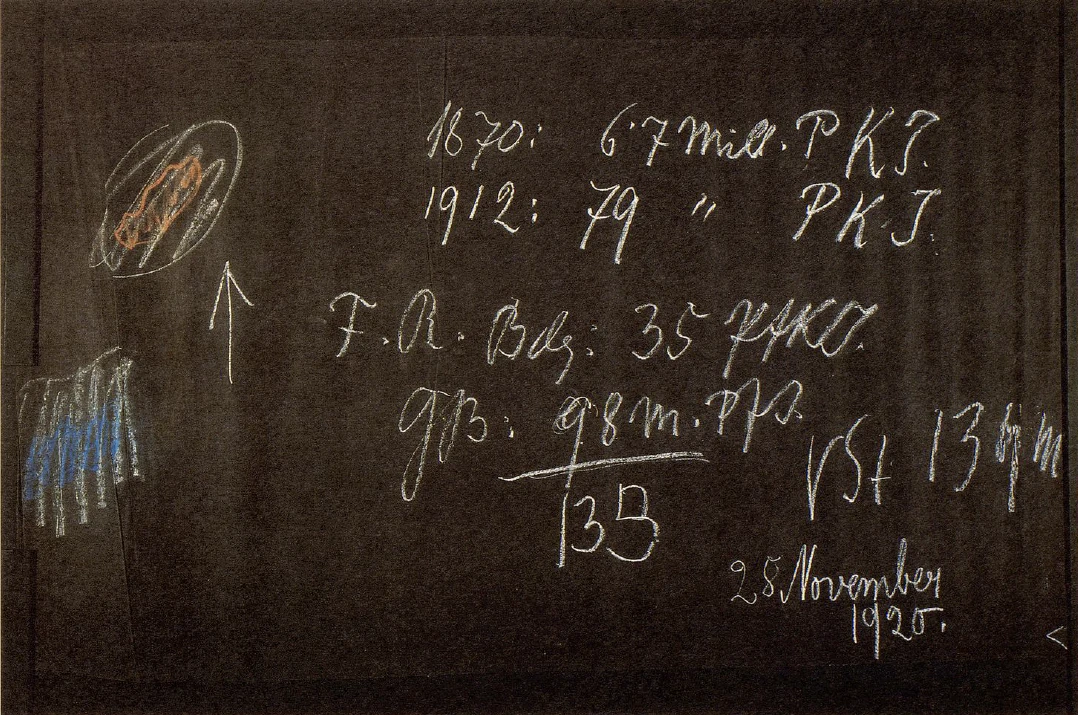 1870: 6·7 Mill. P.K.J.
1912: 79 " P.K.J.
F. R. Bdg: 35
GB: 98 m. Pfs.
135
VSt 13
28 November
1920.